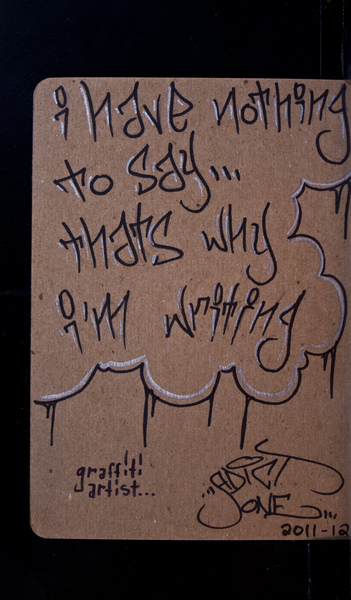 i have nothing
to say...
thats why
i'm writing
graffiti
artist...
ADICT
ONE
2011-12